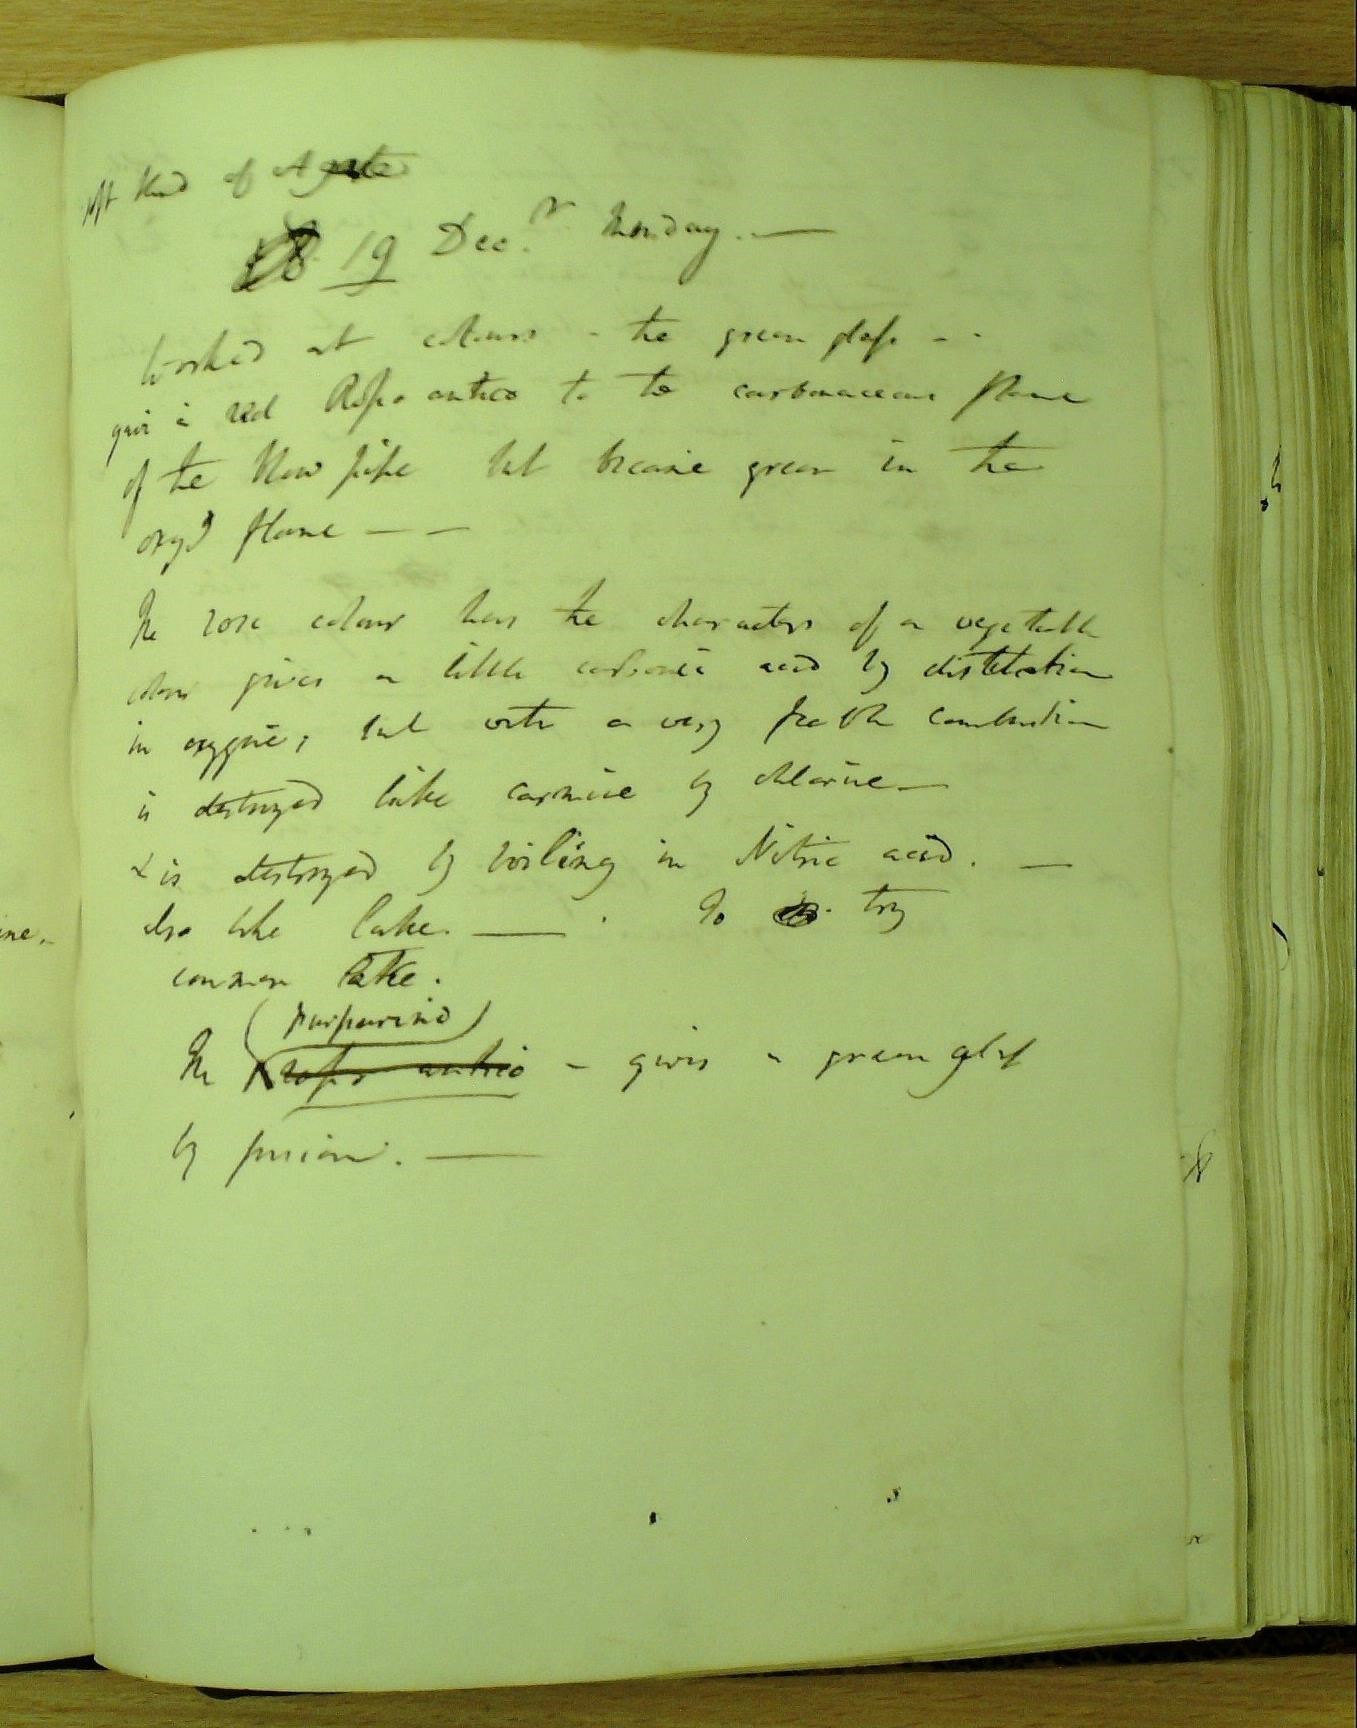 kind of Agate
19 Dec.r Monday. —
Worked at colours - the green glass - -
gave a red Rosso antico to the carbonaceous flame
of the blow pipe but became green in the
oxyd flame — —
The rose colour has the characters of a vegetable
colour gives a little carbonic acid by distillation
in oxygene; but with a very feeble combustion
is destroyed like carmine by chlorine —
& is destroyed by boiling in Nitric acid. —
also like lake. — To try
common lake.
(Purpurino)
The rosso antico - gives a green glass
by fusion. —
ine.